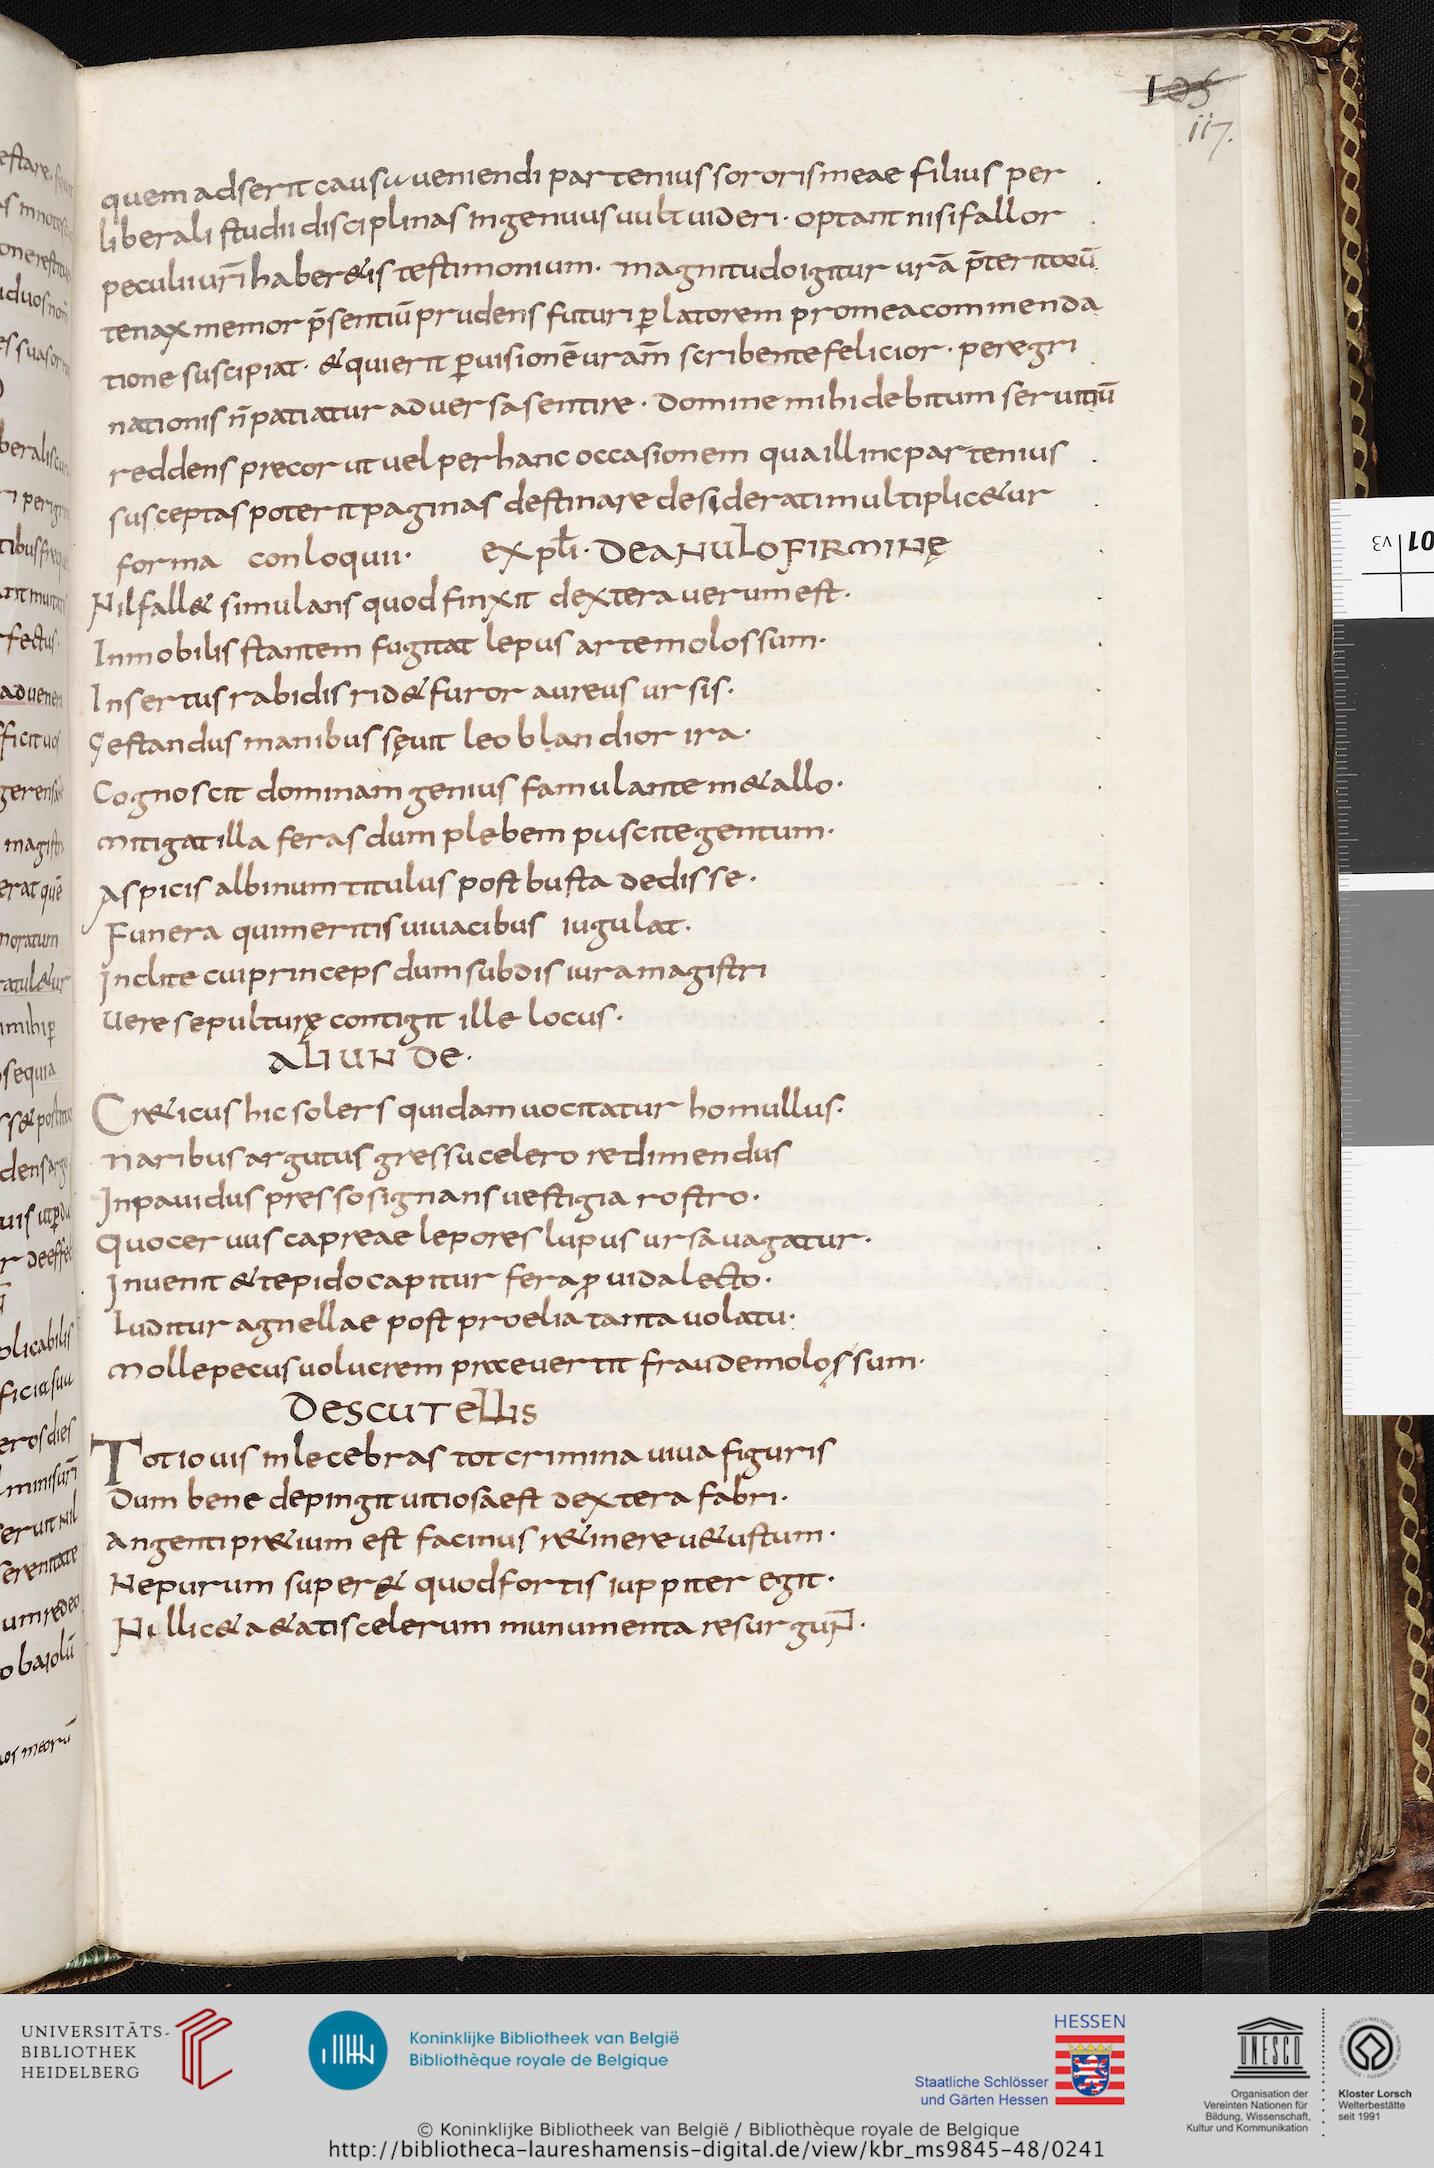 105
117.
quem adserit causu ueniendi partenius sororis meae filius per
liberali studii disciplinas ingenuus uult uideri · optant nisi fallor
peculii ur̄i haber& is testimonium · magnitudo igitur urā p̄teritorū
tenax memor p̄sentiū prudens futuri ꝑ latorem pro mea commenda
tione suscipiat · & qui erit ꝑuisionē uram̄ scribente felicior · peregri
nationis n̄ patiatur aduersa sentire · domine mihi debitum seruitiū
reddens precor ut uel per hanc occasionem qua illinc partenius
susceptas poterit paginas destinare desiderati multiplic&ur
forma conloquii · expł̄i · DE ANULO FIRMINĘ
Nil fall& simulans quod finxit dextera uerum est ·
Inmobilis stantem fugitat lepus arte molossum ·
Insertus rabidis rid& furor aureus ursis ·
Gestandus manibus sęuit leo blandior ira ·
Cognoscit dominam genius famulante m&allo ·
Mitigat illa feras dum plebem puscite gentum ·
Aspicis albinum titulus post busta dedisse ·
Funera qui meritis uiuacibus iugulat ·
Inclite cui princeps dum subdis iura magistri
Uere sepulturę contigit ille locus ·
ALIUNDE ·
Cr&icus hic solers quidam uocitatur homullus ·
naribus argutus gressu celero redimendus
Inpauidus presso signans uestigia rostro ·
Quo ceruus capreae lepores lupus ursa uagatur ·
Inuenit & tepido capitur fera ꝓuida lecto ·
Luditur agnellae post proelia tanta uolatu ·
Molle pecus uolucrem praeeuertit fraude molossum ·
DE SCUTELLIS
Tot iouis inlecebras tot crimina uiua figuris
Dum bene depingit uitiosa est dextera fabri ·
Angenti pr&ium est facinus r&inere u&ustum ·
Ne purum super& quod fortis iuppiter egit ·
Nil lic& a&ati scelerum munumenta resurguñt ·
UNIVERSITÄTS-
BIBLIOTHEK
HEIDELBERG
Koninklijke Bibliotheek van België
Bibliothèque royale de Belgique
HESSEN
Staatliche Schlösser
und Gärten Hessen
UNESCO
Organisation der
Vereinten Nationen für
Bildung, Wissenschaft,
Kultur und Kommunikation
Kloster Lorsch
Welterbestätte
seit 1991
© Koninklijke Bibliotheek van België / Bibliothèque royale de Belgique
http://bibliotheca-laureshamensis-digital.de/view/kbr_ms9845-48/0241